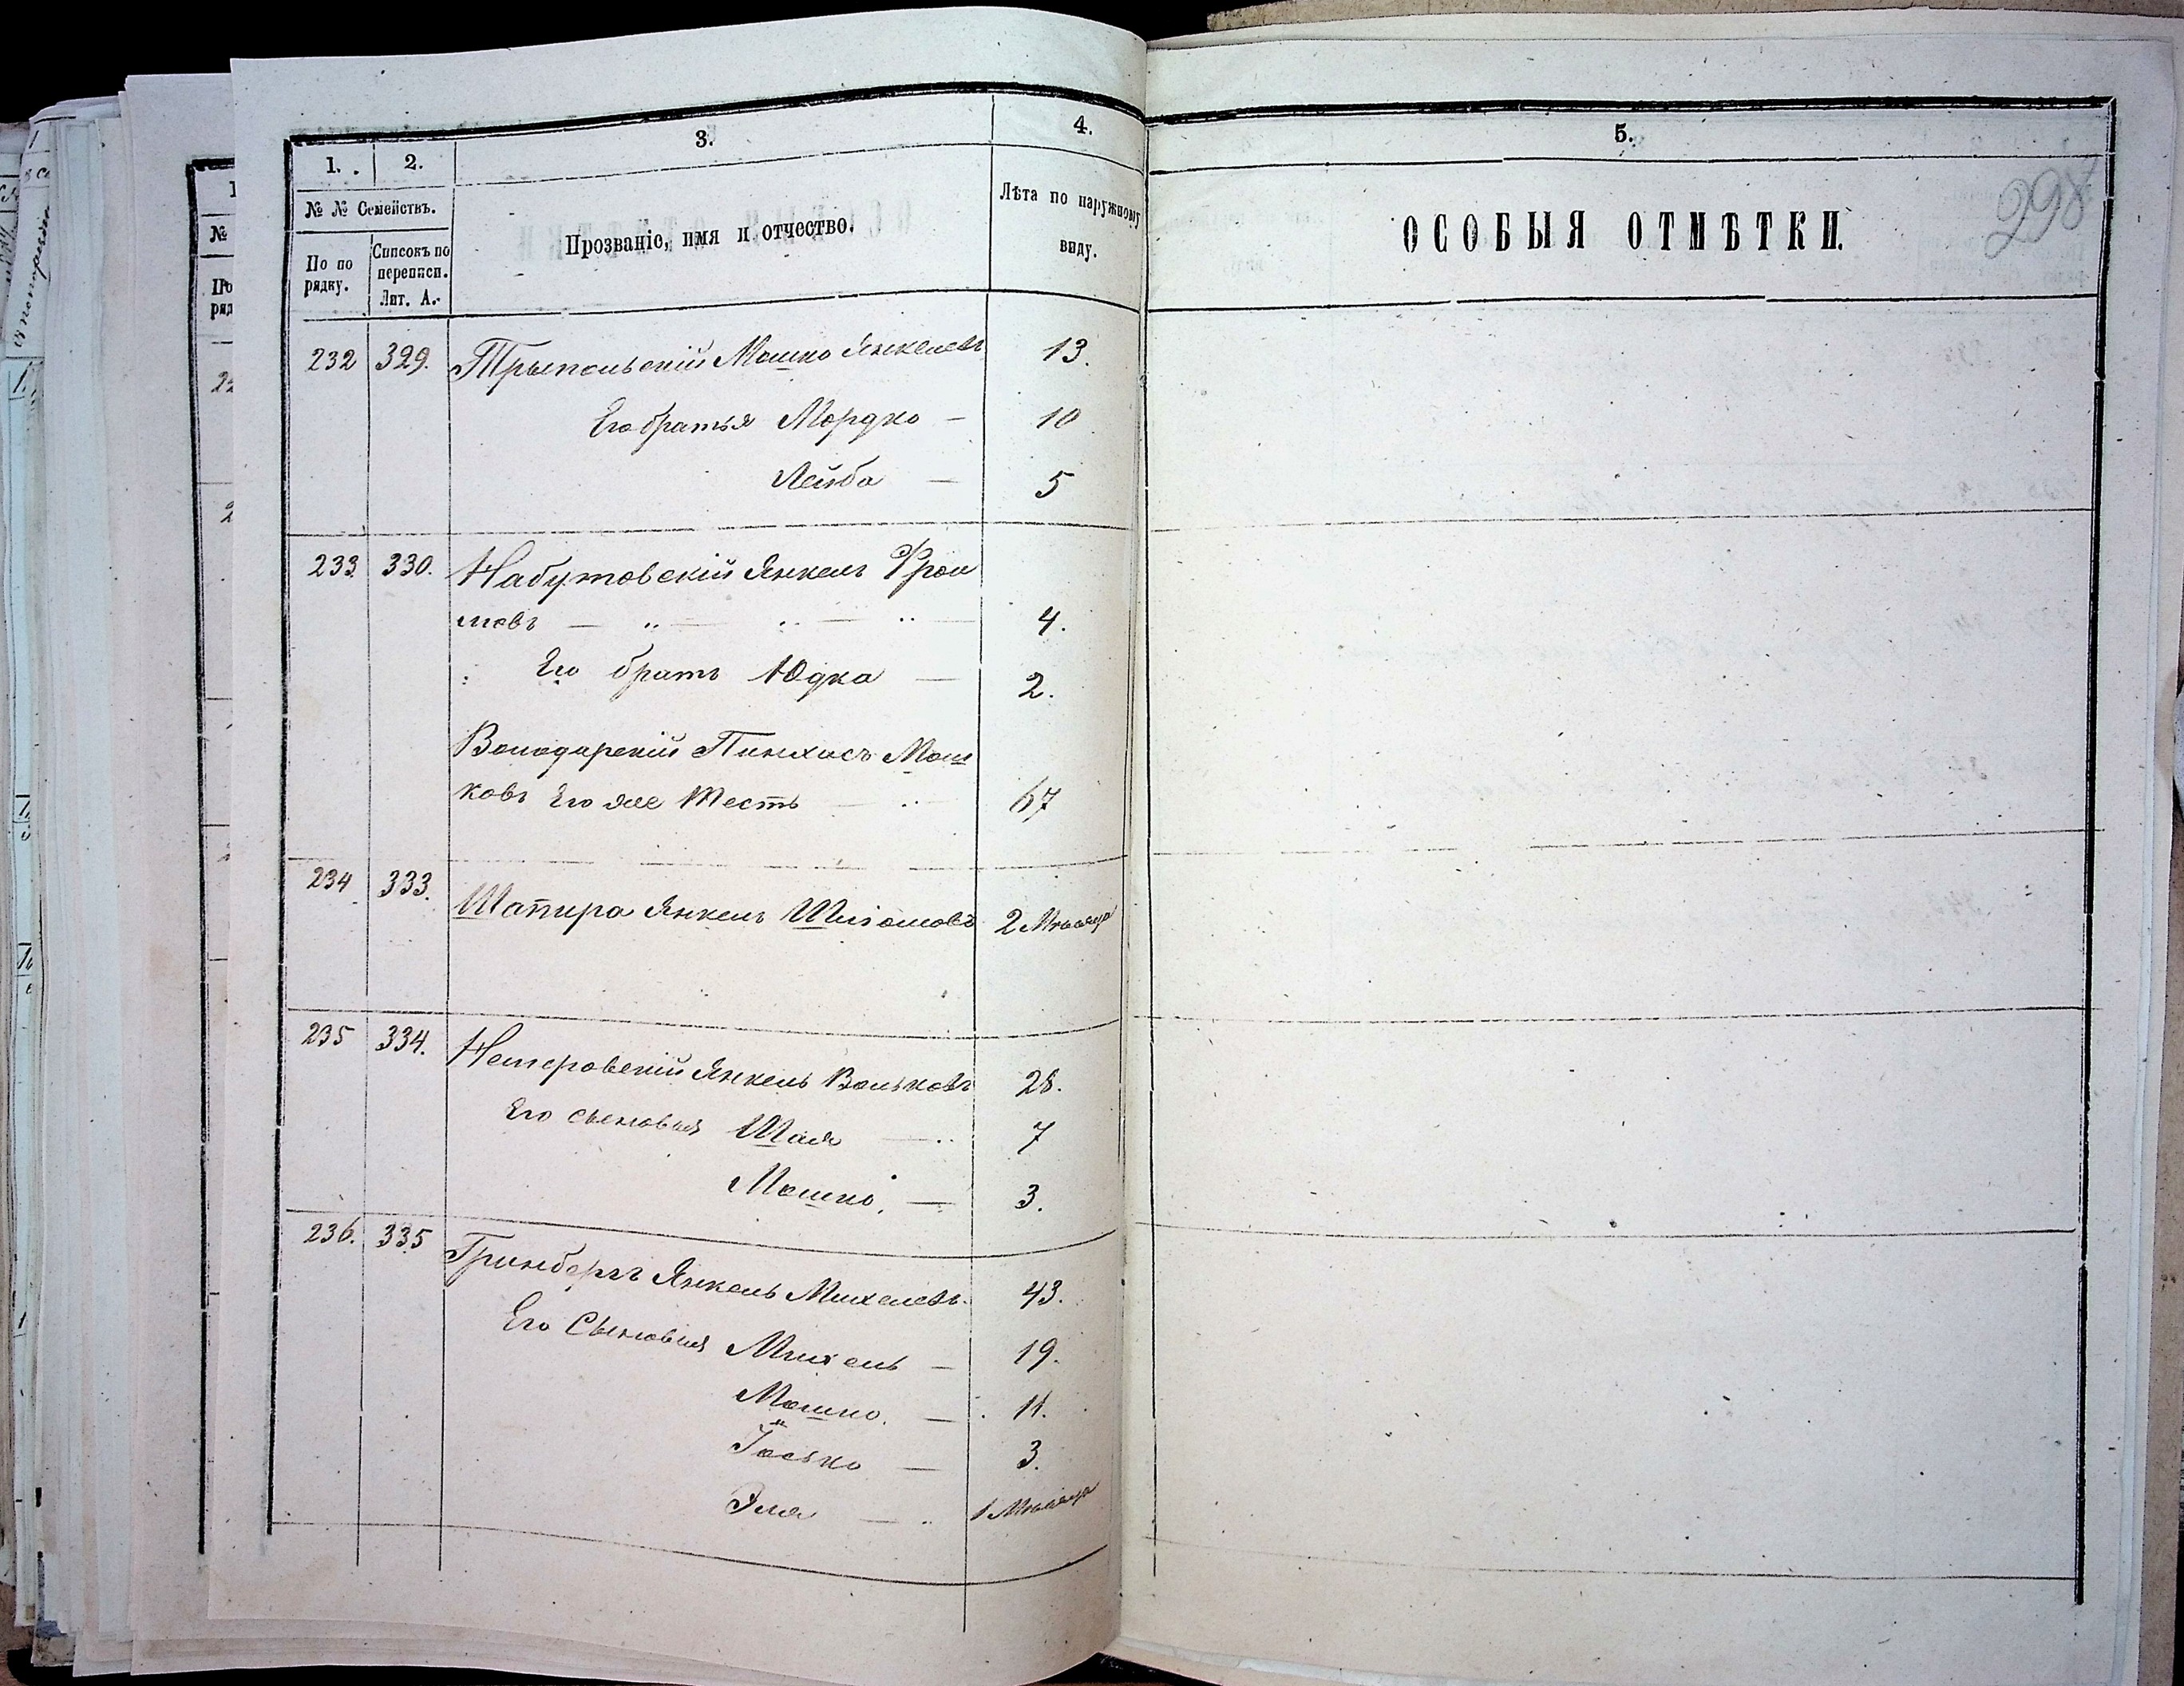 1. 2. 3. 4. 5.
№ № Семействъ.
По по рядку.
Списокъ по переписи. Лит. А.
Прозваніе, имя и отчество.
Лѣта по наружному виду.
ОСОБЫЯ ОТМѢТКИ.
298
232 329. Трыпольскій Мошко Янкелевъ 13.
Его братья Мордко — 10
Лейба — 5
233. 330. Набутовскій Янкель Фрои
мовъ — 4.
Его братъ Юдка — 2.
Володарскій Пинхасъ Мош
ковъ Его же Тесть 67
234 333. Шапира Янкель 2 Мѣсяца
235 334. Янкель Вольковъ 28.
Его сыновья Шая — 7
Мошко — 3.
236. 335 Гринбергъ Янкель Михелевъ 43.
Его Сыновья Михель — 19.
Мошко. — 11.
Іосько — 3.
Эля — 1 Мѣсяца